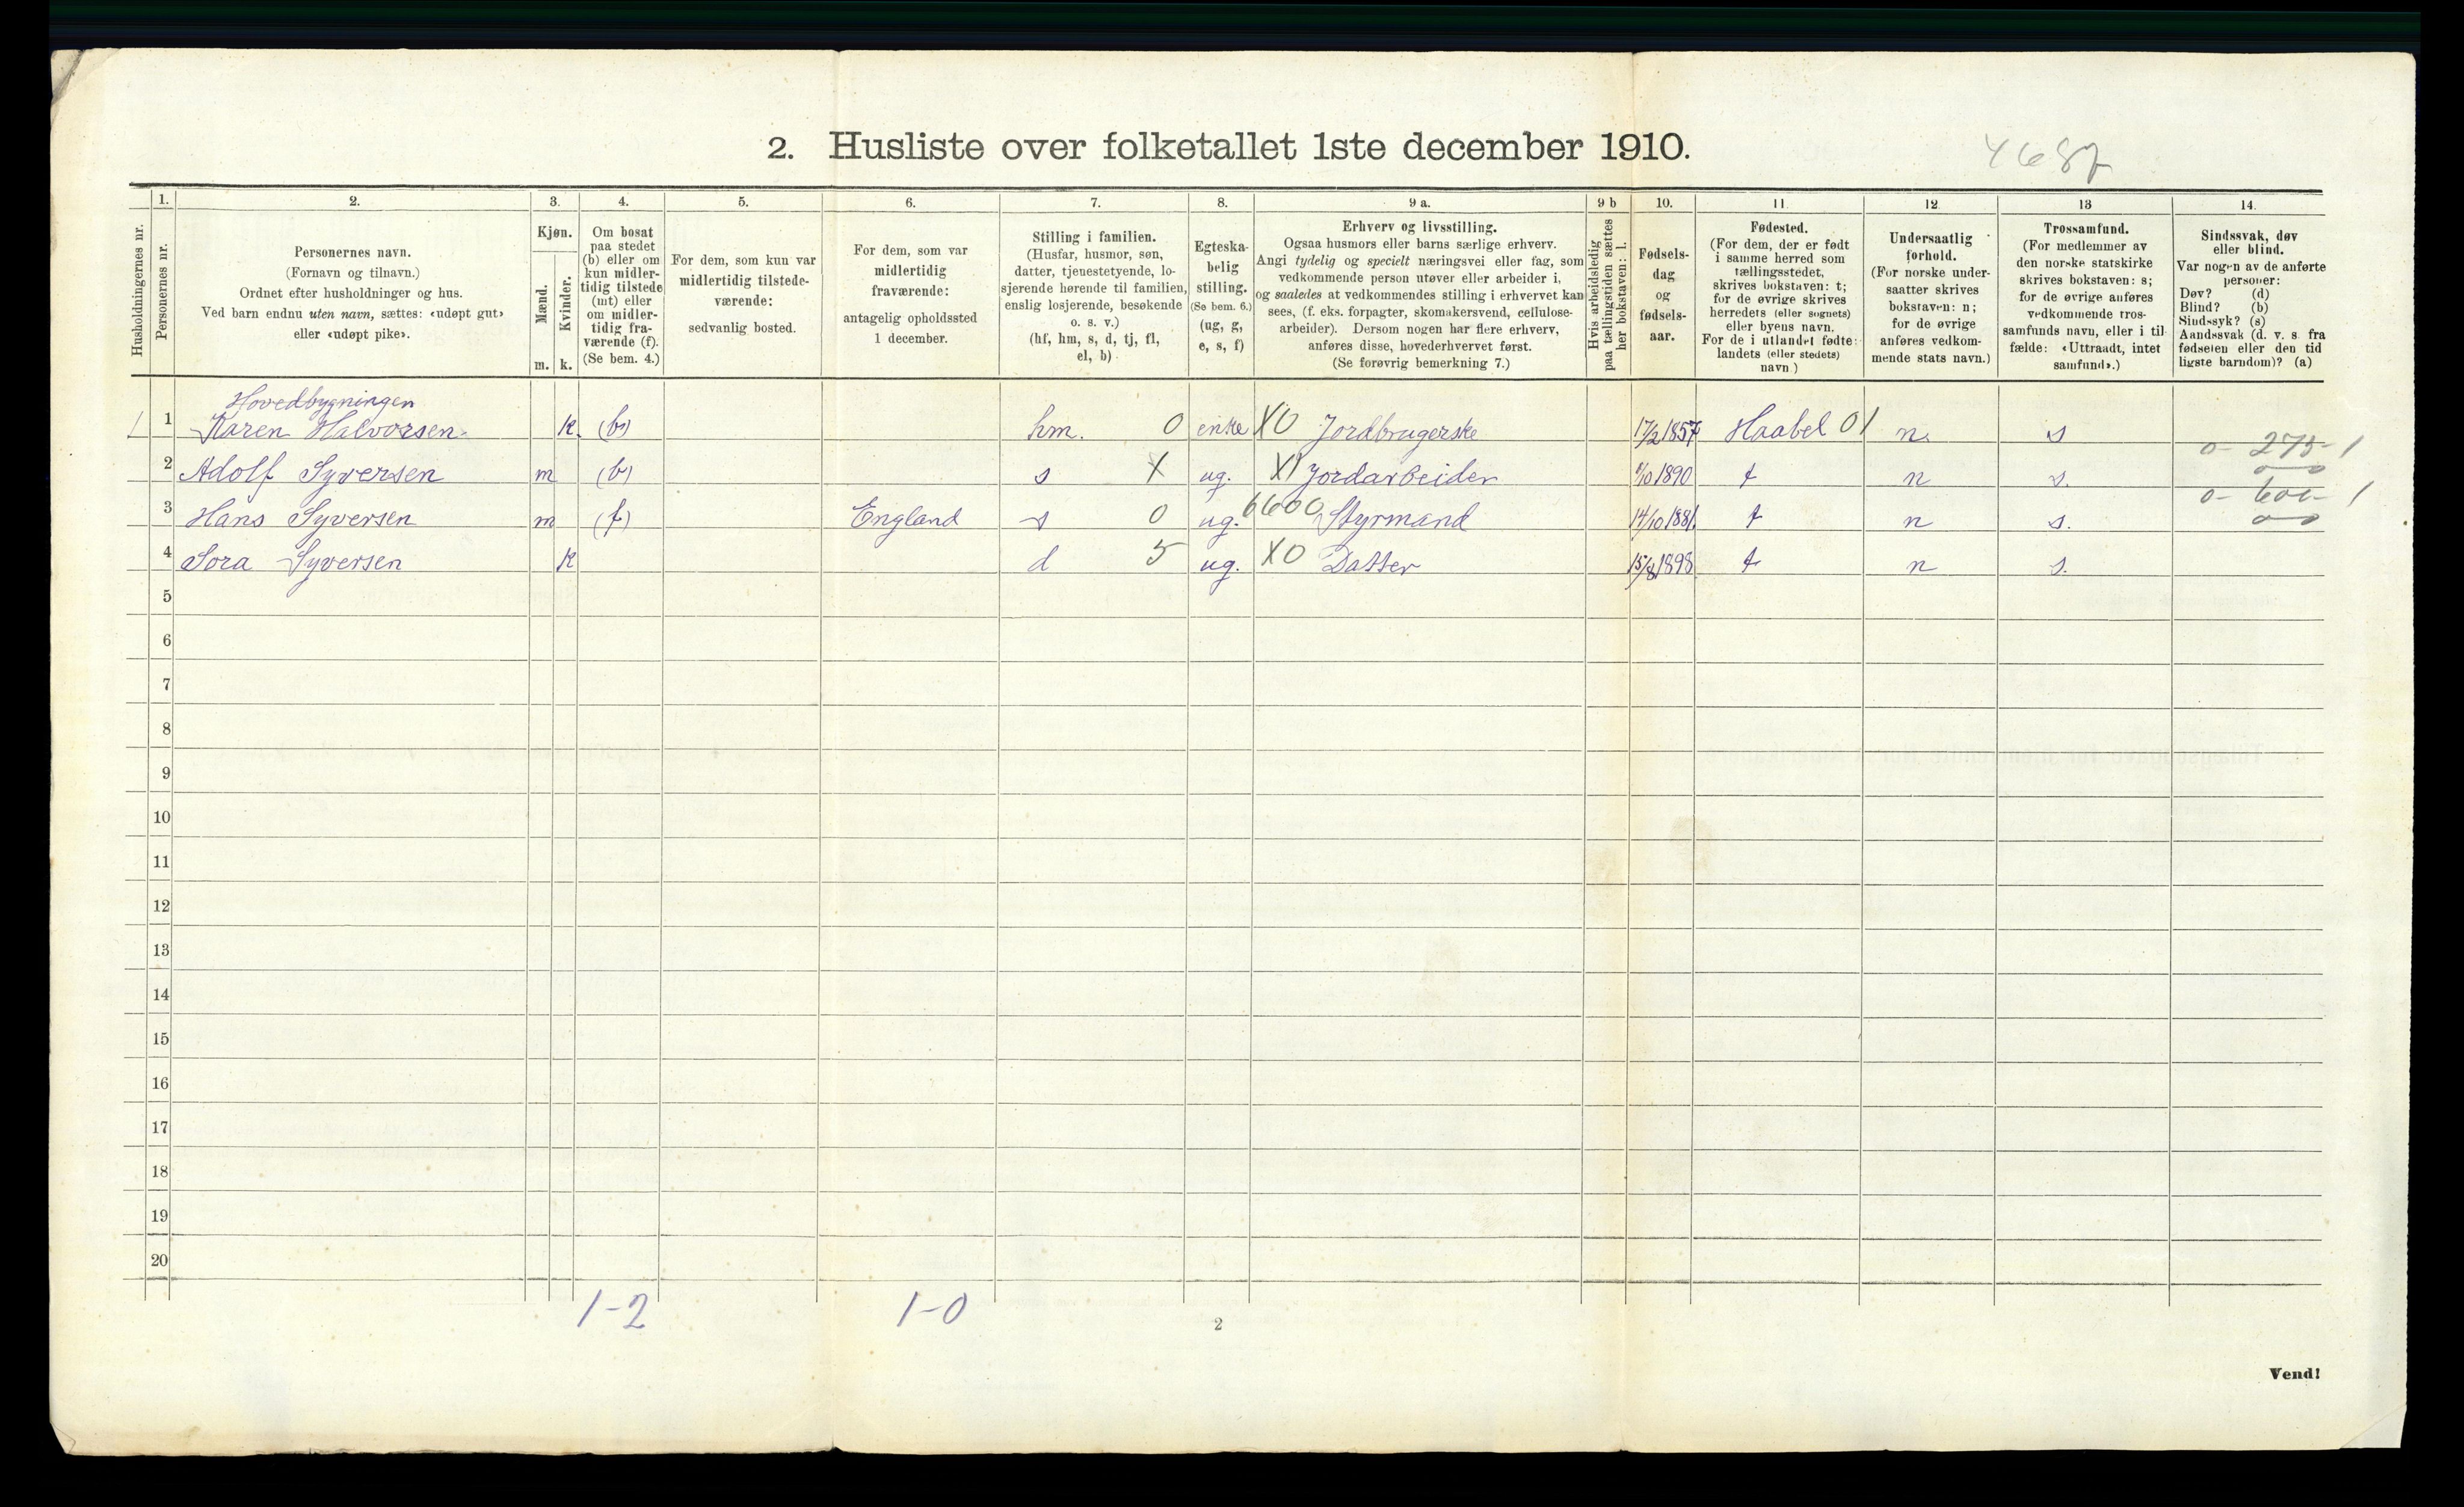 2. Husliste over folketallet 1ste december 1910.
4687
Husholdningernes nr.
1.
Personernes nr.
2.
Personernes navn.
(Fornavn og tilnavn.)
Ordnet efter husholdninger og hus.
Ved barn endnu uten navn, sættes: «udøpt gut»
eller «udøpt pike».
3.
Kjøn.
Mænd.
m.
Kvinder.
k.
4.
Om bosat
paa stedet
(b) eller om
kun midler-
tidig tilstede
(mt) eller
om midler-
tidig fra-
værende (f).
(Se bem. 4.)
5.
For dem, som kun var
midlertidig tilstede-
værende:
sedvanlig bosted.
6.
For dem, som var
midlertidig
fraværende:
antagelig opholdssted
1 december.
7.
Stilling i familien.
(Husfar, husmor, søn,
datter, tjenestetyende, lo-
sjerende hørende til familien,
enslig losjerende, besøkende
o. s. v.)
(hf, hm, s, d, tj, fl,
el, b)
8.
Egteska-
belig
stilling.
(Se bem. 6.)
(ug, g,
e, s, f)
9 a.
Erhverv og livsstilling.
Ogsaa husmors eller barns særlige erhverv.
Angi tydelig og specielt næringsvei eller fag, som
vedkommende person utøver eller arbeider i,
og saaledes at vedkommendes stilling i erhvervet kan
sees, (f. eks. forpagter, skomakersvend, cellulose-
arbeider). Dersom nogen har flere erhverv,
anføres disse, hovederhvervet først.
(Se forøvrig bemerkning 7.)
9 b
Hvis arbeidsledig
paa tællingstiden sættes
her bokstaven: l.
10.
Fødsels-
dag
og
fødsels-
aar.
11.
Fødested.
(For dem, der er født
i samme herred som
tællingsstedet,
skrives bokstaven: t;
for de øvrige skrives
herredets (eller sognets)
eller byens navn.
For de i utlandet fødte:
landets (eller stedets)
navn.)
12.
Undersaatlig
forhold.
(For norske under-
saatter skrives
bokstaven: n;
for de øvrige
anføres vedkom-
mende stats navn.)
13
Trossamfund.
(For medlemmer av
den norske statskirke
skrives bokstaven: s;
for de øvrige anføres
vedkommende tros-
samfunds navn, eller i til-
fælde: «Uttraadt, intet
samfund».)
14.
Sindssvak, døv
eller blind.
Var nogen av de anførte
personer:
Døv? (d)
Blind? (b)
Sindssyk? (s)
Aandssvak (d. v. s. fra
fødselen eller den tid-
ligste barndom)? (a)
Hovedbygningen
1 1 Karen Halvorsen k. (b) hm. 0 enke X0 Jordbrugerske 17/2 1857 Haabel 01 n. s
2 Adolf Syversen m (b) s X ug. X1 Jordarbeider /10 1890 t n s. 0- 275- 1
3 Hans Syversen m (f) England s 0 ug. 6600 Styrmand 14/10 1881. t n s. 0- 600- 1
4 Sora Syversen k d 5 ug. X0 Datter 15/8 1898 t n s.
5
6
7
8
9
10
11
12
13
14
15
16
17
18
19
20
1-2 1-0
2
Vend!